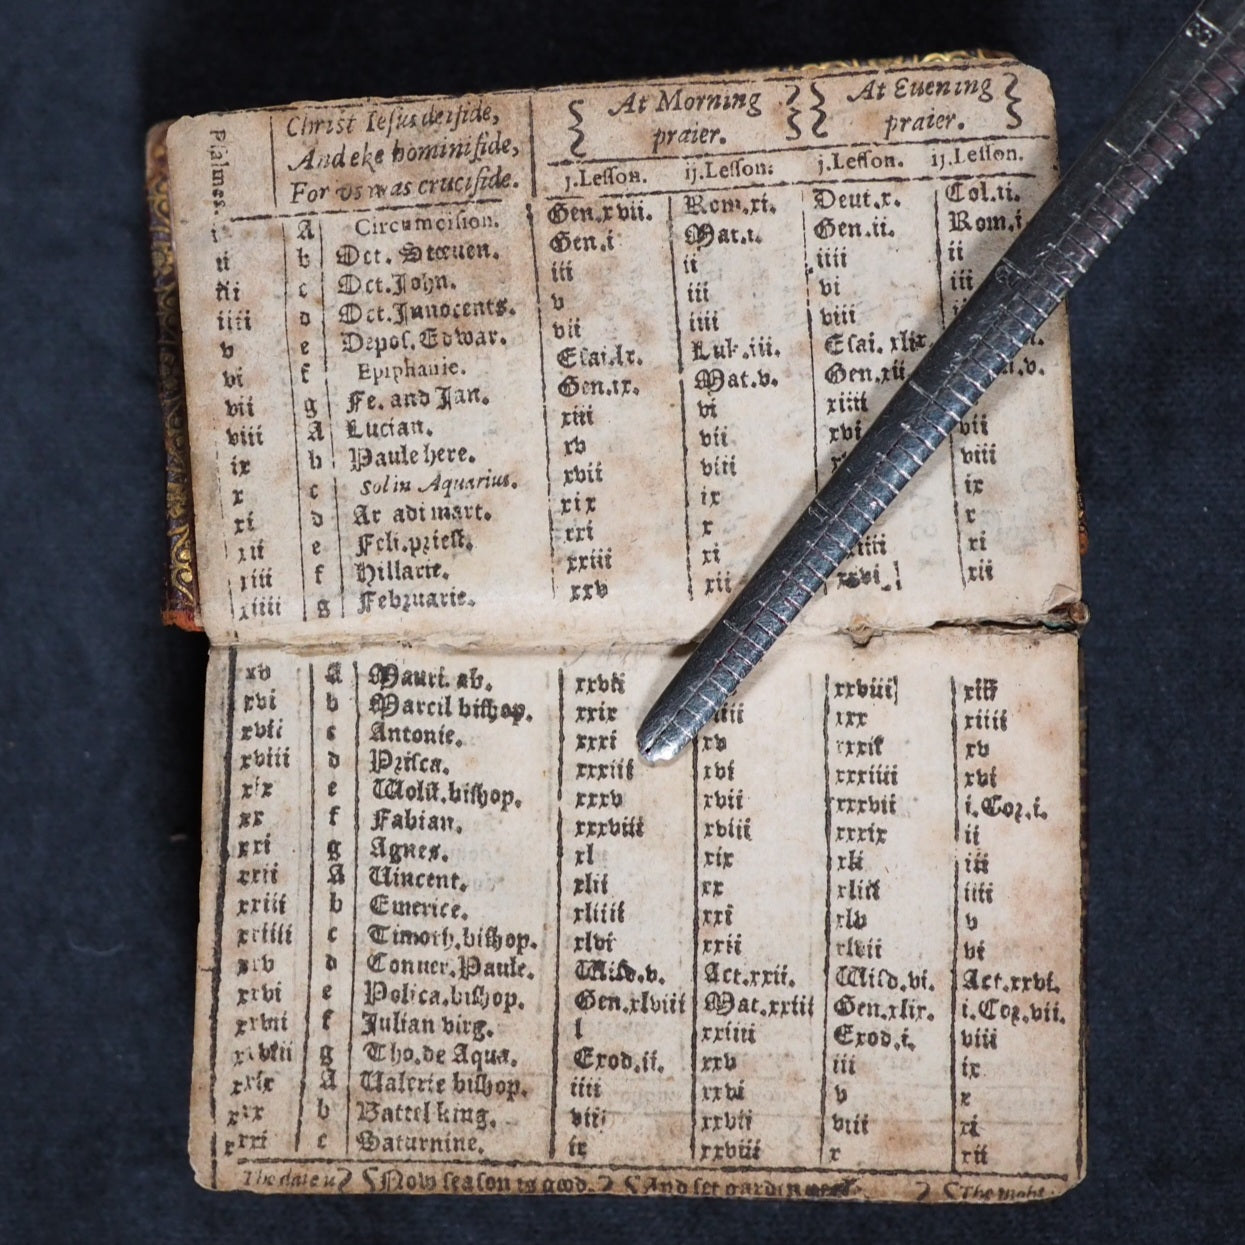 Psalmes.
Christ Iesus deifide,
And eke hominifide,
For vs was crucifide.
At Morning praier.
At Euening praier.
j.Leſſon. ij.Leſſon: j.Leſſon. ij.Leſſon.
i A Circumciſion. Gen.xvii. Rom.ii. Deut.x. Col.ii.
ii b Oct. Steeuen. Gen.i Mat.i. Gen.ii. Rom.i
iii c Oct.John. iii ii iiii ii
iiii d Oct.Innocents. v iii vi iii
v e Depoſ.Edwar. vii iiii viii
vi f Epiphanie. Eſai.lx. Luk.iii. Eſai.xlix
vii g Fe. and Jan. Gen.ix. Mat.v. Gen.xii v.
viii A Lucian. xiii vi xiiii
ix b Paule here. xv vii xvi vii
x c Sol in Aquarius. xvii viii viii
xi d Ar adi mart. xix ix ix
xii e Feli.prieſt. xxi x x
xiii f Hillarie. xxiii xi xi
xiiii g Februarie. xxv xii xxvi. xii
xv A Mauri. ab. xxvii xxviii xiii
xvi b Marcil biſhop. xxix xxx xiiii
xvii c Antonie. xxxi xv xxxii xv
xviii d Priſca. xxxiii xvi xxxiiii xvi
xix e Wolſt.biſhop. xxxv xvii xxxvii i.Cor.i.
xx f Fabian. xxxviii xviii xxxix ii
xxi g Agnes. xl xix xli iii
xxii A Uincent. xlii xx xliii iiii
xxiii b Emerice. xliiii xxi xlv v
xxiiii c Timoth.biſhop. xlvi xxii xlvii vi
xxv d Conuer.Paule. Wiſd.v. Act.xxii. Wiſd.vi. Act.xxvi.
xxvi e Polica.biſhop. Gen.xlviii Mat.xxiii Gen.xlix. i.Cor.vii.
xxvii f Julian virg. l xxiiii Exod.i. viii
xxviii g Tho.de Aqua. Exod.ii. xxv iii ix
xxix A Ualerie biſhop. iiii xxvi v x
xxx b Battel king. vii xxvii viii xi
xxxi c Saturnine. ix xxviii x xii
The date Now ſeaſon is good. And ſet The night